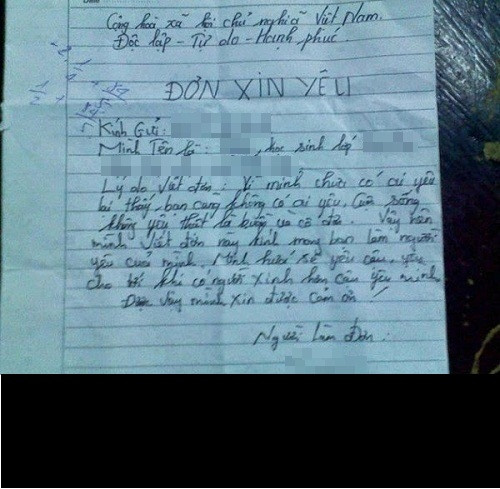 Cộng hoà xã hội chủ nghĩa Việt Nam.
Độc lập - Tự do - Hạnh phúc.
ĐƠN XIN YÊU
Kính Gửi:
Mình Tên là: , học sinh lớp
Lý do viết đơn: Vì mình chưa có ai yêu
lại thấy bạn cũng không có ai yêu. Cuộc sống
không yêu thật là buồn và cô đơn. Vậy nên
mình viết đơn này kính mong bạn làm người
yêu của mình. Mình hứa sẽ yêu cậu, yêu
cho tới khi có người xinh hơn cậu yêu mình
Được vậy mình xin được cảm ơn!
Người Làm Đơn: